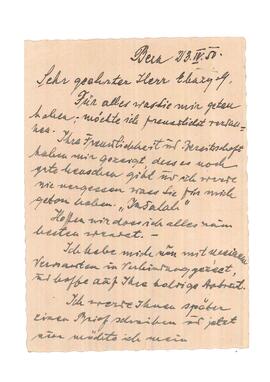 Bern 23.IV.50.
Sehr geehrter Herr
Für alles was Sie mir getan
haben, möchte ich freundlichst verdan-
ken. Ihre Freundlichkeit und Bereitschaft
haben mir gezeigt, dass es noch
gute Menschen gibt und ich werde
nie vergessen was Sie für mich
getan haben.
Hoffen wir dass sich alles zum
besten wendet. –
Ich habe mich nun mit meinen
Verwandten in Verbindung gesetzt,
und hoffe auf Ihre baldige Antwort.
Ich werde Ihnen später
einen Brief schreiben und jetzt
nur möchte ich mein